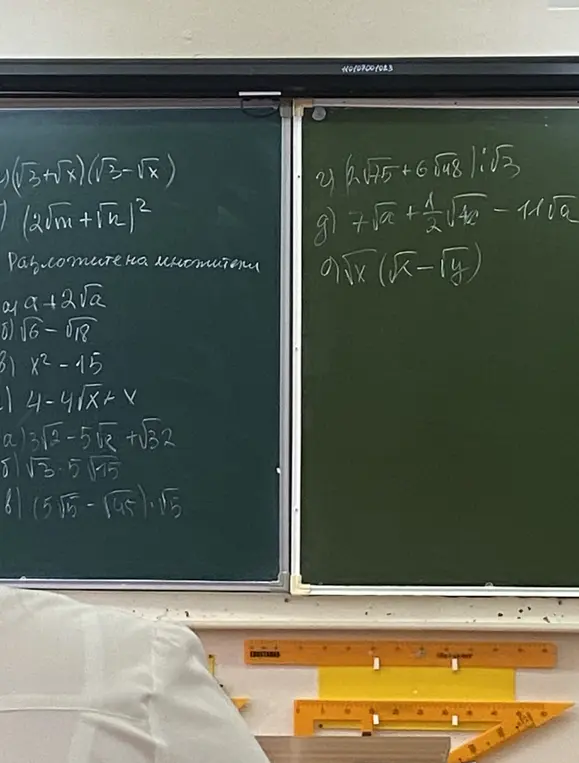 ) (√3+√x)(√3-√x)
) (2√m+√n)²
Разложите на множители
а) a+2√a
б) √6-√18
в) x²-15
) 4-4√x+x
а) 3√2-5√2+√32
б) √3·5√15
в) (5√5-√45)·√5
г) (2√75+6√48):√3
д) 7√a+1/2√4a-11√a
√x(√x-√y)